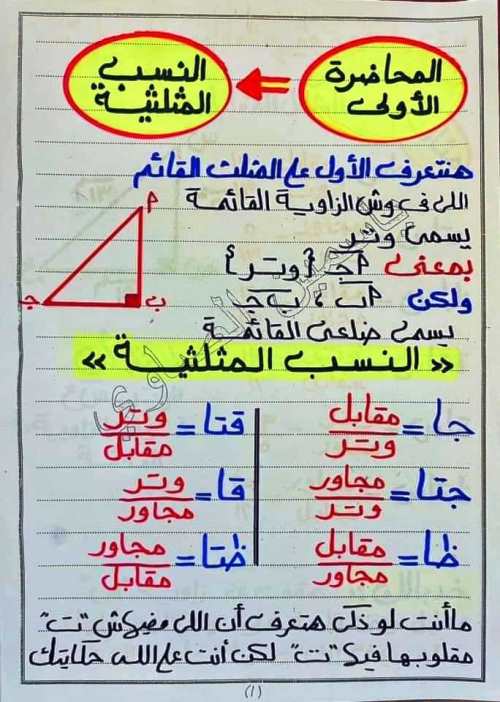 المحاضرة الأولى
النسب المثلثية
هنتعرف الأول على المثلث القائم
اللى فى وش الزاوية القائمة
يسمى وتر
بمعنى أجـ {وتر}
ولكن أب ، ب جـ
يسمى ضلعى القائمة
أ
ب
جـ
« النسب المثلثية »
جا = مقابل / وتر
قتا = وتر / مقابل
جتا = مجاور / وتر
قا = وتر / مجاور
ظا = مقابل / مجاور
ظتا = مجاور / مقابل
ما أنت لو ذكى هتعرف أن اللى مفيهاش "ت"
مقلوبها فيها "ت" لكن أنت على الله حكايتك
(1)